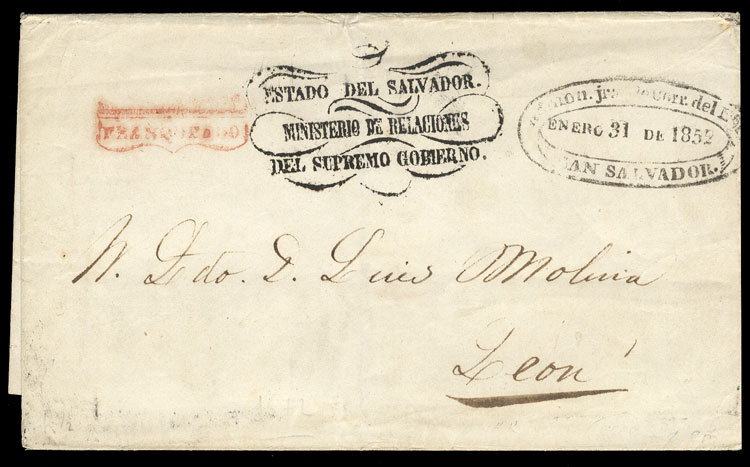 FRANQUEADO
ESTADO DEL SALVADOR.
MINISTERIO DE RELACIONES
DEL SUPREMO GOBIERNO.
jral de Corr. del
ENERO 31 DE 1852
SAN SALVADOR.
D. Luis Molina
Leon